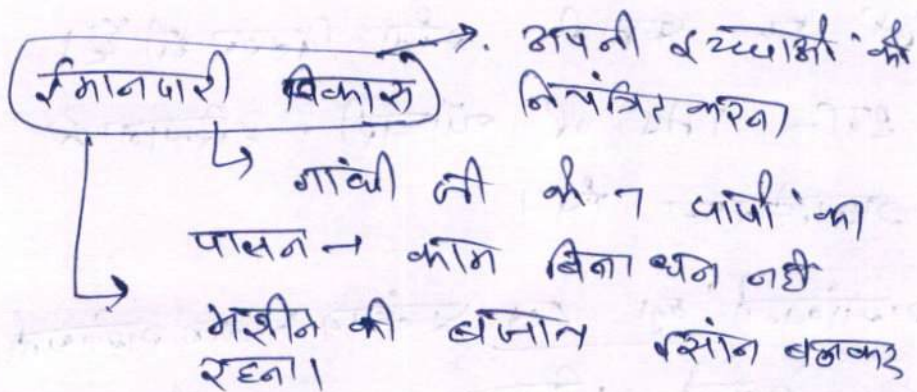 ईमानदारी विकास → अपनी इच्छाओं को
नियंत्रित करना
→ गांधी जी के 7 पापों का
पालन → काम बिना धन नहीं
→ मशीन की बजाय इंसान बनकर
रहना।